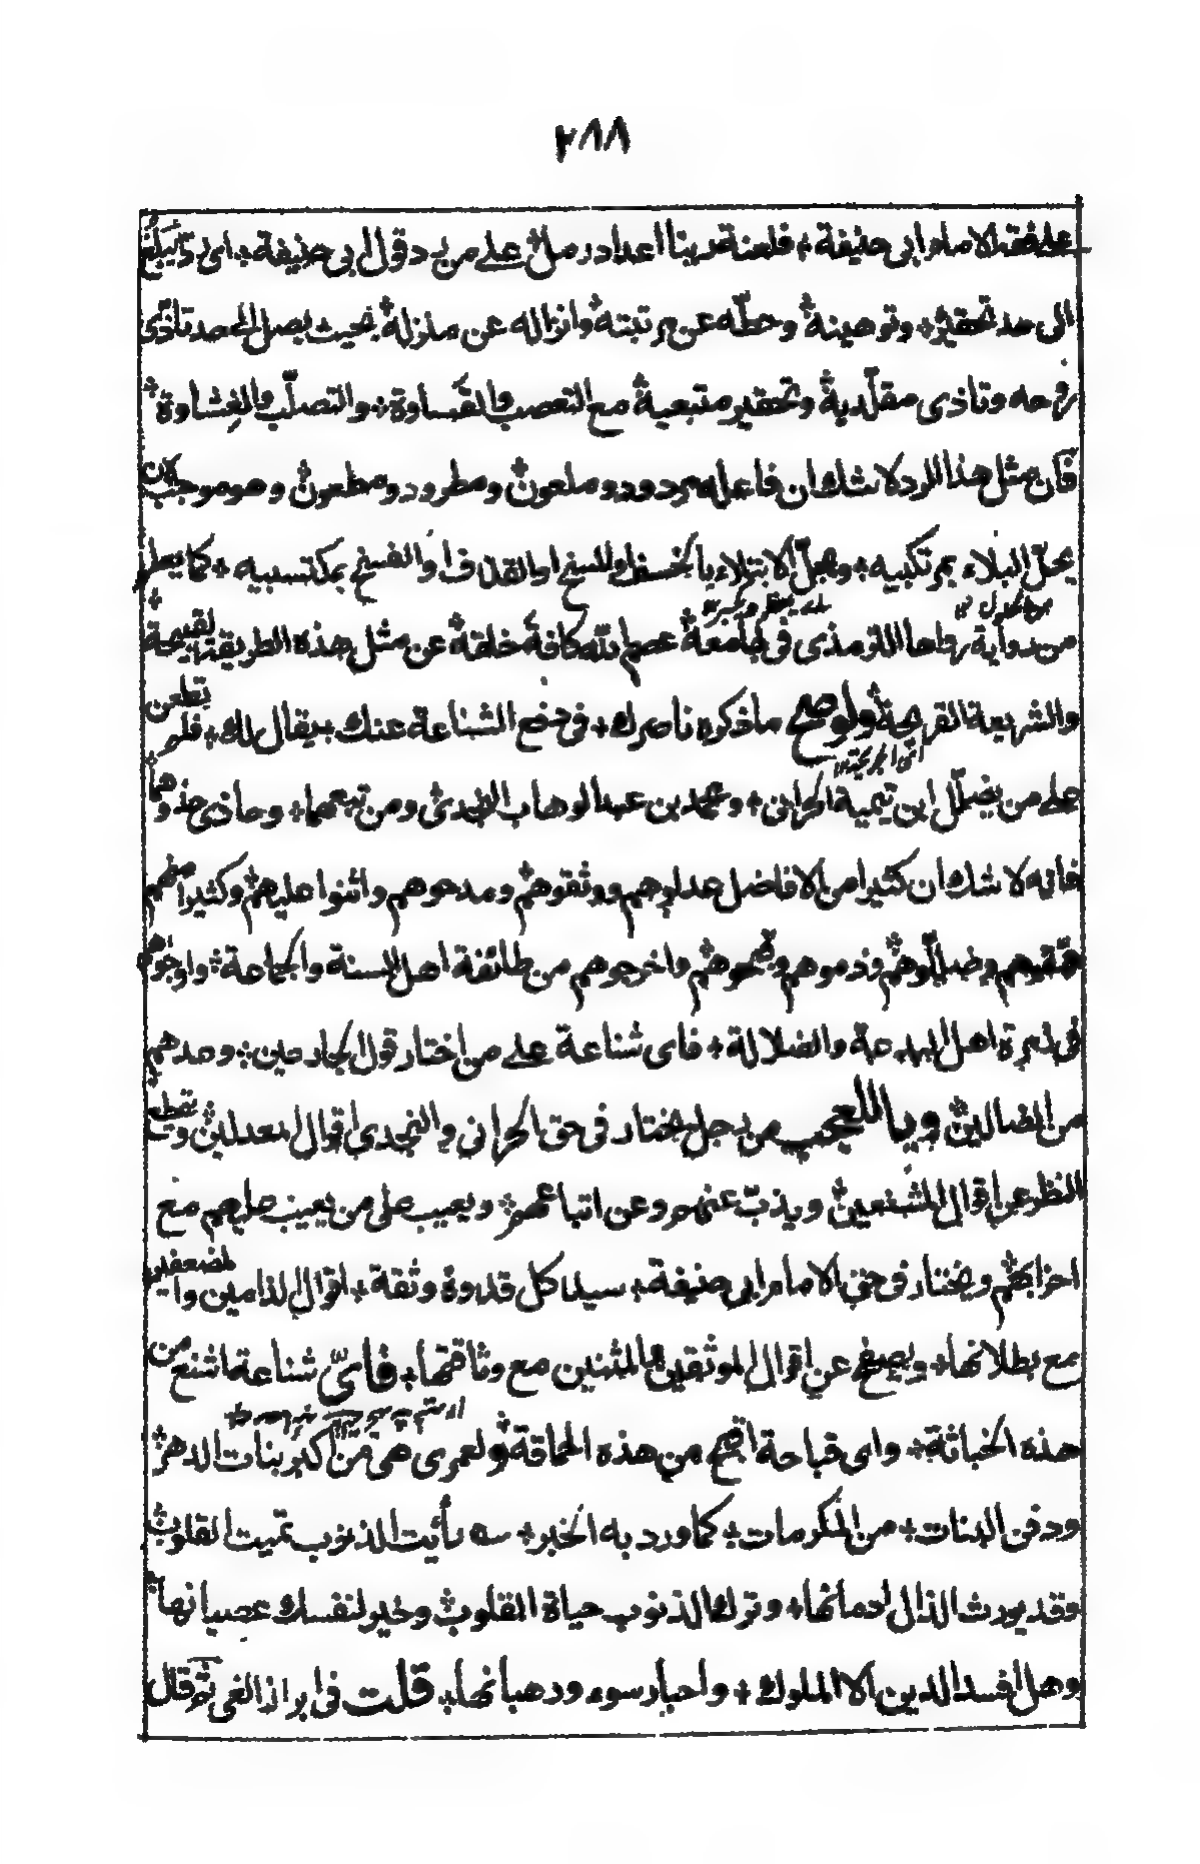 ٢٨٨
على فقه الامام ابى حنيفة + فلعنة ربنا اعداد رمل * على من رد قول ابى حنيفة + اى ردّ ايبلغ
الى حد تحقيره + وتوهينه * وحطّه عن مرتبته * وانزاله عن منزلة * بحيث يصل الى حد تاذّى
روحه وتاذى مقلّدية * وتحقير متبعيه * مع التعصب والقساوة + والتصلّب والغشاوة *
فان مثل هذا الرد لا شك ان فاعله مردود وملعون * ومطرود ومطعون * وهو موجب لان
يحلّ البلاء بمرتكبيه + وهلّ الابتلاء بالخسف او المسخ او القذف او الفسخ بمكتسبيه + كما يعلم
من رواية رواها الترمذى فى جامعه * عصم الله كافة خلقه * عن مثل هذه الطريقة القبيحة *
والشريعة القريحة * ولو صح ما ذكره ناصرك + فى دفع الشناعة عنك بد يقال لك + فلم تطعن
على من يضلّل ابن تيمية الحرانى + ومحمد بن عبد الوهاب النجدى * ومن تبعهما + وحاذى حذوهما
فانه لا شك ان كثيرا من الافاضل عدلوهم ووثقوهم * ومدحوهم واثنوا عليهم * وكثيرا منهم
حقّروهم وضلّلوهم * وذموهم وقبّحوهم * واخرجوهم من طائفة اهل السنة والجماعة * واولجوهم
فى زمرة اهل البدعة والضلالة + فاى شناعة على من اختار قول الجارحين + وعدهم
من الضالين * ويا للعجب من رجل يختار فى حق الحرانى والنجدى اقوال المعدلين * ويقطع
النظر عن اقوال المشنعين * ويذبّ عنهم وعن اتباعهم * ويعيب على من يعيب عليهم مع
احزابهم * ويختار فى حق الامام ابى حنيفة + سيد كل قدوة وثقة + اقوال الذامين والمضعفين
مع بطلانها + ويصفح عن اقوال الموثقين والمثنين مع وثاقتها + فاىّ شناعة اشنع من
هذه الخباثة + واى قباحة اقبح من هذه الحماقة * ولعمرى هى من اكبر بنات الدهر *
ودفن البنات + من المكرمات + كما ورد به الخبر + سه رأيت الذنوب تميت القلوب *
وقد يورث الذل ادمانها + وترك الذنوب حياة القلوب * وخير لنفسك عصيانها *
وهل افسد الدين الا الملوك + واحبار سوء ورهبانها + قلت فى ابراز الغى ثم قال